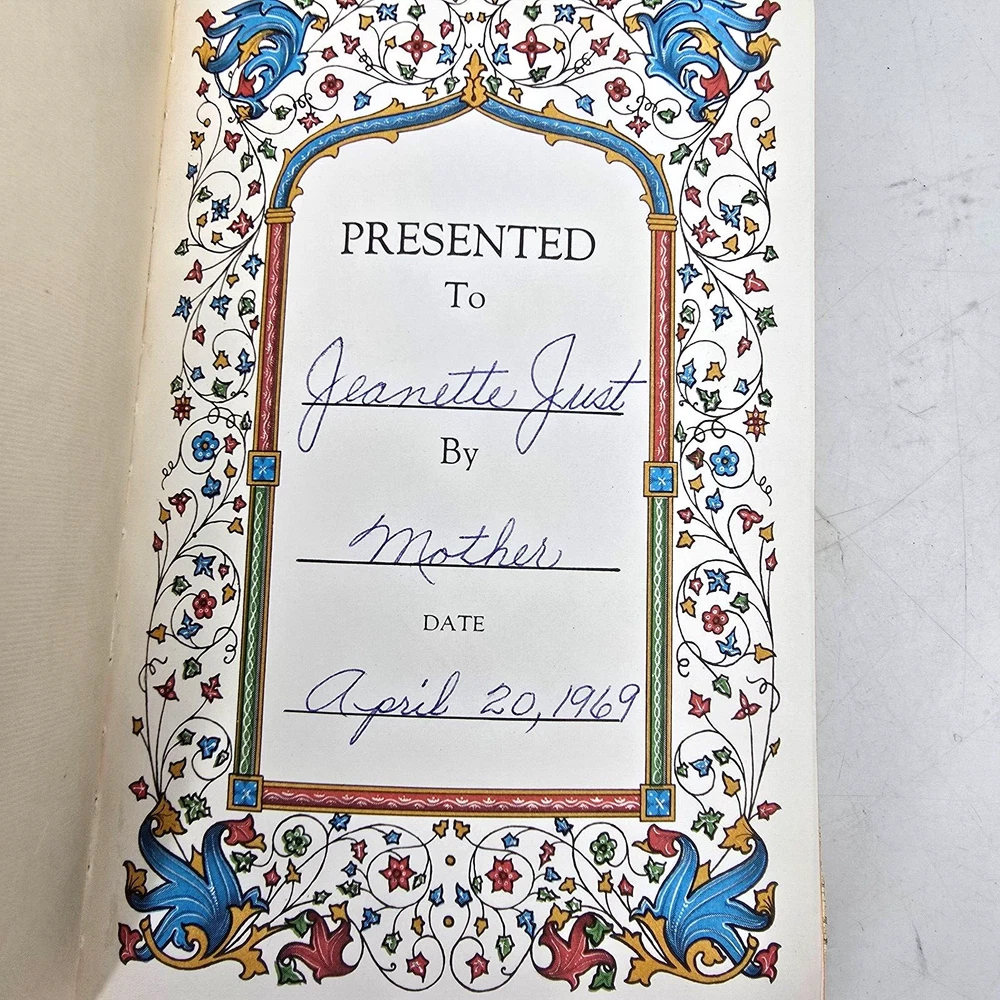 PRESENTED
To
Jeanette Just
By
Mother
DATE
April 20, 1969